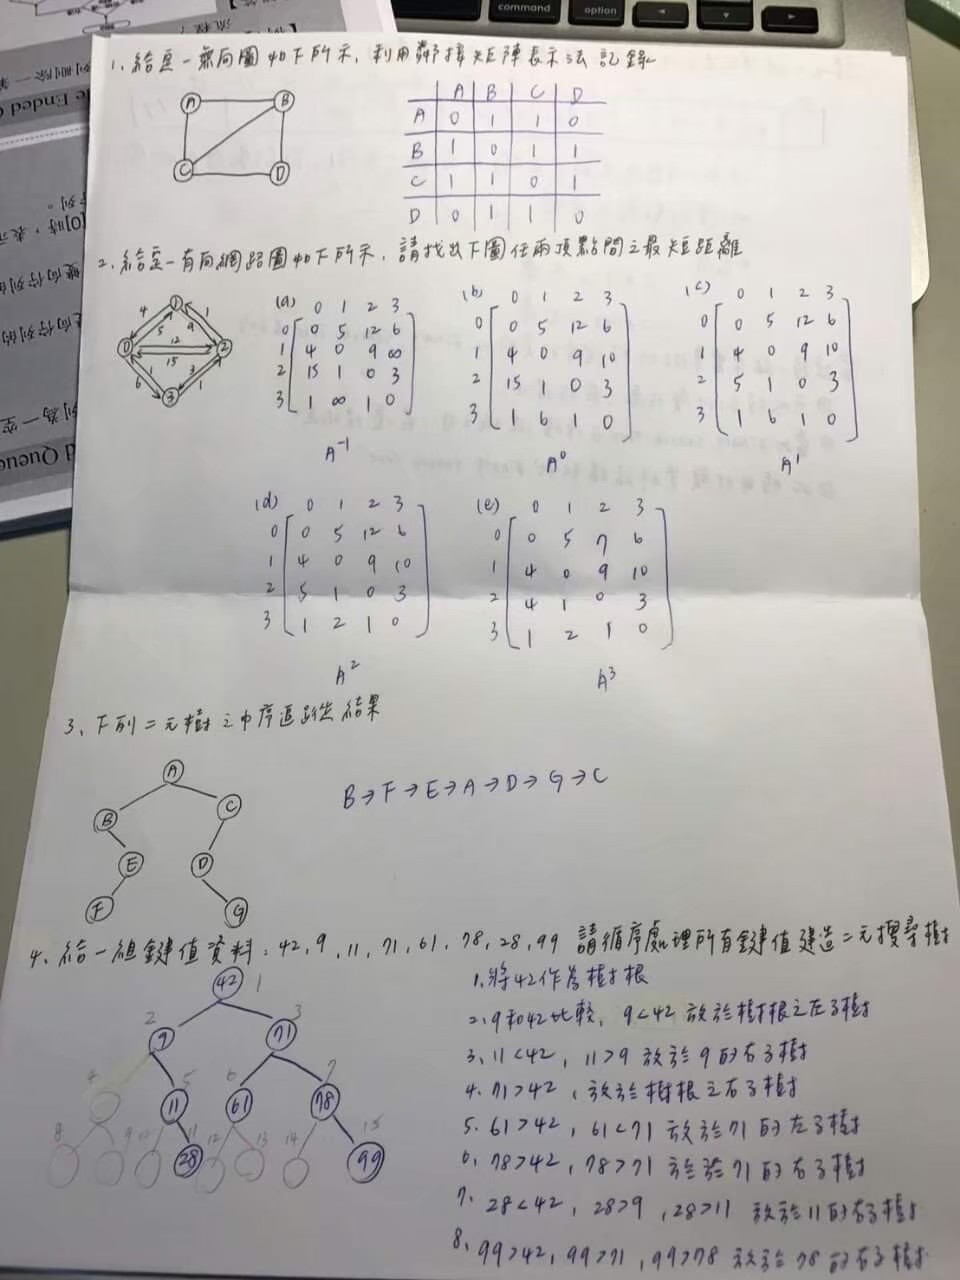 command
option
1. 給定一無向圖如下所示, 利用鄰接矩陣表示法記錄
A B
C D
A B C D
A 0 1 1 0
B 1 0 1 1
C 1 1 0 1
D 0 1 1 0
2. 給定一有向網路圖如下所示, 請找出下圖任兩頂點間之最短距離
1
4 5 9 1
0 12 2
15
6 1 3 1
3
(a) 0 1 2 3
0 0 5 12 6
1 4 0 9 ∞
2 15 1 0 3
3 1 ∞ 1 0
A⁻¹
(b) 0 1 2 3
0 0 5 12 6
1 4 0 9 10
2 15 1 0 3
3 1 6 1 0
A⁰
(c) 0 1 2 3
0 0 5 12 6
1 4 0 9 10
2 5 1 0 3
3 1 6 1 0
A¹
(d) 0 1 2 3
0 0 5 12 6
1 4 0 9 10
2 5 1 0 3
3 1 2 1 0
A²
(e) 0 1 2 3
0 0 5 7 6
1 4 0 9 10
2 4 1 0 3
3 1 2 1 0
A³
3、下列二元樹之中序追蹤結果
A
B C
E D
F G
B→F→E→A→D→G→C
4、給一組鍵值資料: 42, 9, 11, 71, 61, 78, 28, 99 請循序處理所有鍵值建造二元搜尋樹
42 1
2 9 3 71
4 5 11 6 61 7 78
8 9 10 11 28 12 13 14 15 99
1.將42作為樹根
2.9和42比較, 9<42 放於樹根之左子樹
3、11<42, 11>9 放於9的右子樹
4.71>42, 放於樹根之右子樹
5. 61>42, 61<71 放於71的左子樹
6、78>42, 78>71 放於71的右子樹
7. 28<42, 28>9, 28>11 放於11的右子樹
8、99>42, 99>71, 99>78 放於78的右子樹